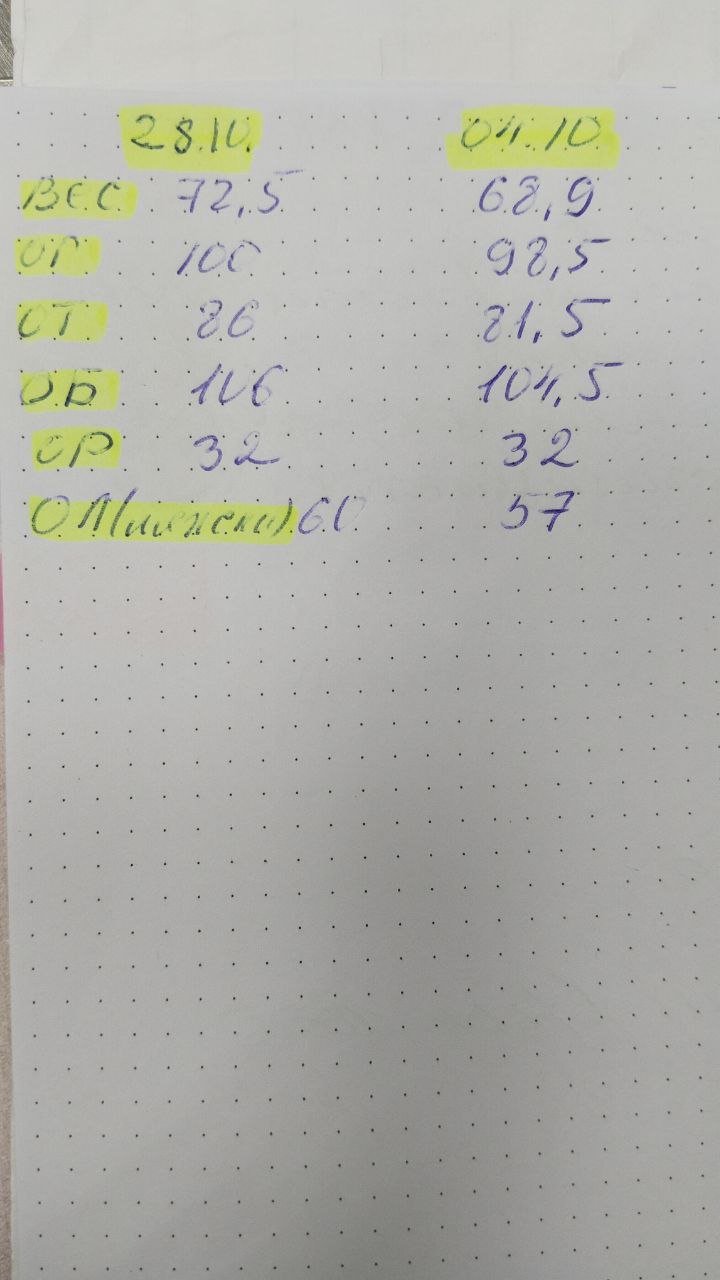 28.10. 04.10
ВЕС 72,5 68,9
ОГ 100 98,5
ОТ 86 81,5
ОБ 106 104,5
ОР 32 32
ОЛ(ляжски) 60 57